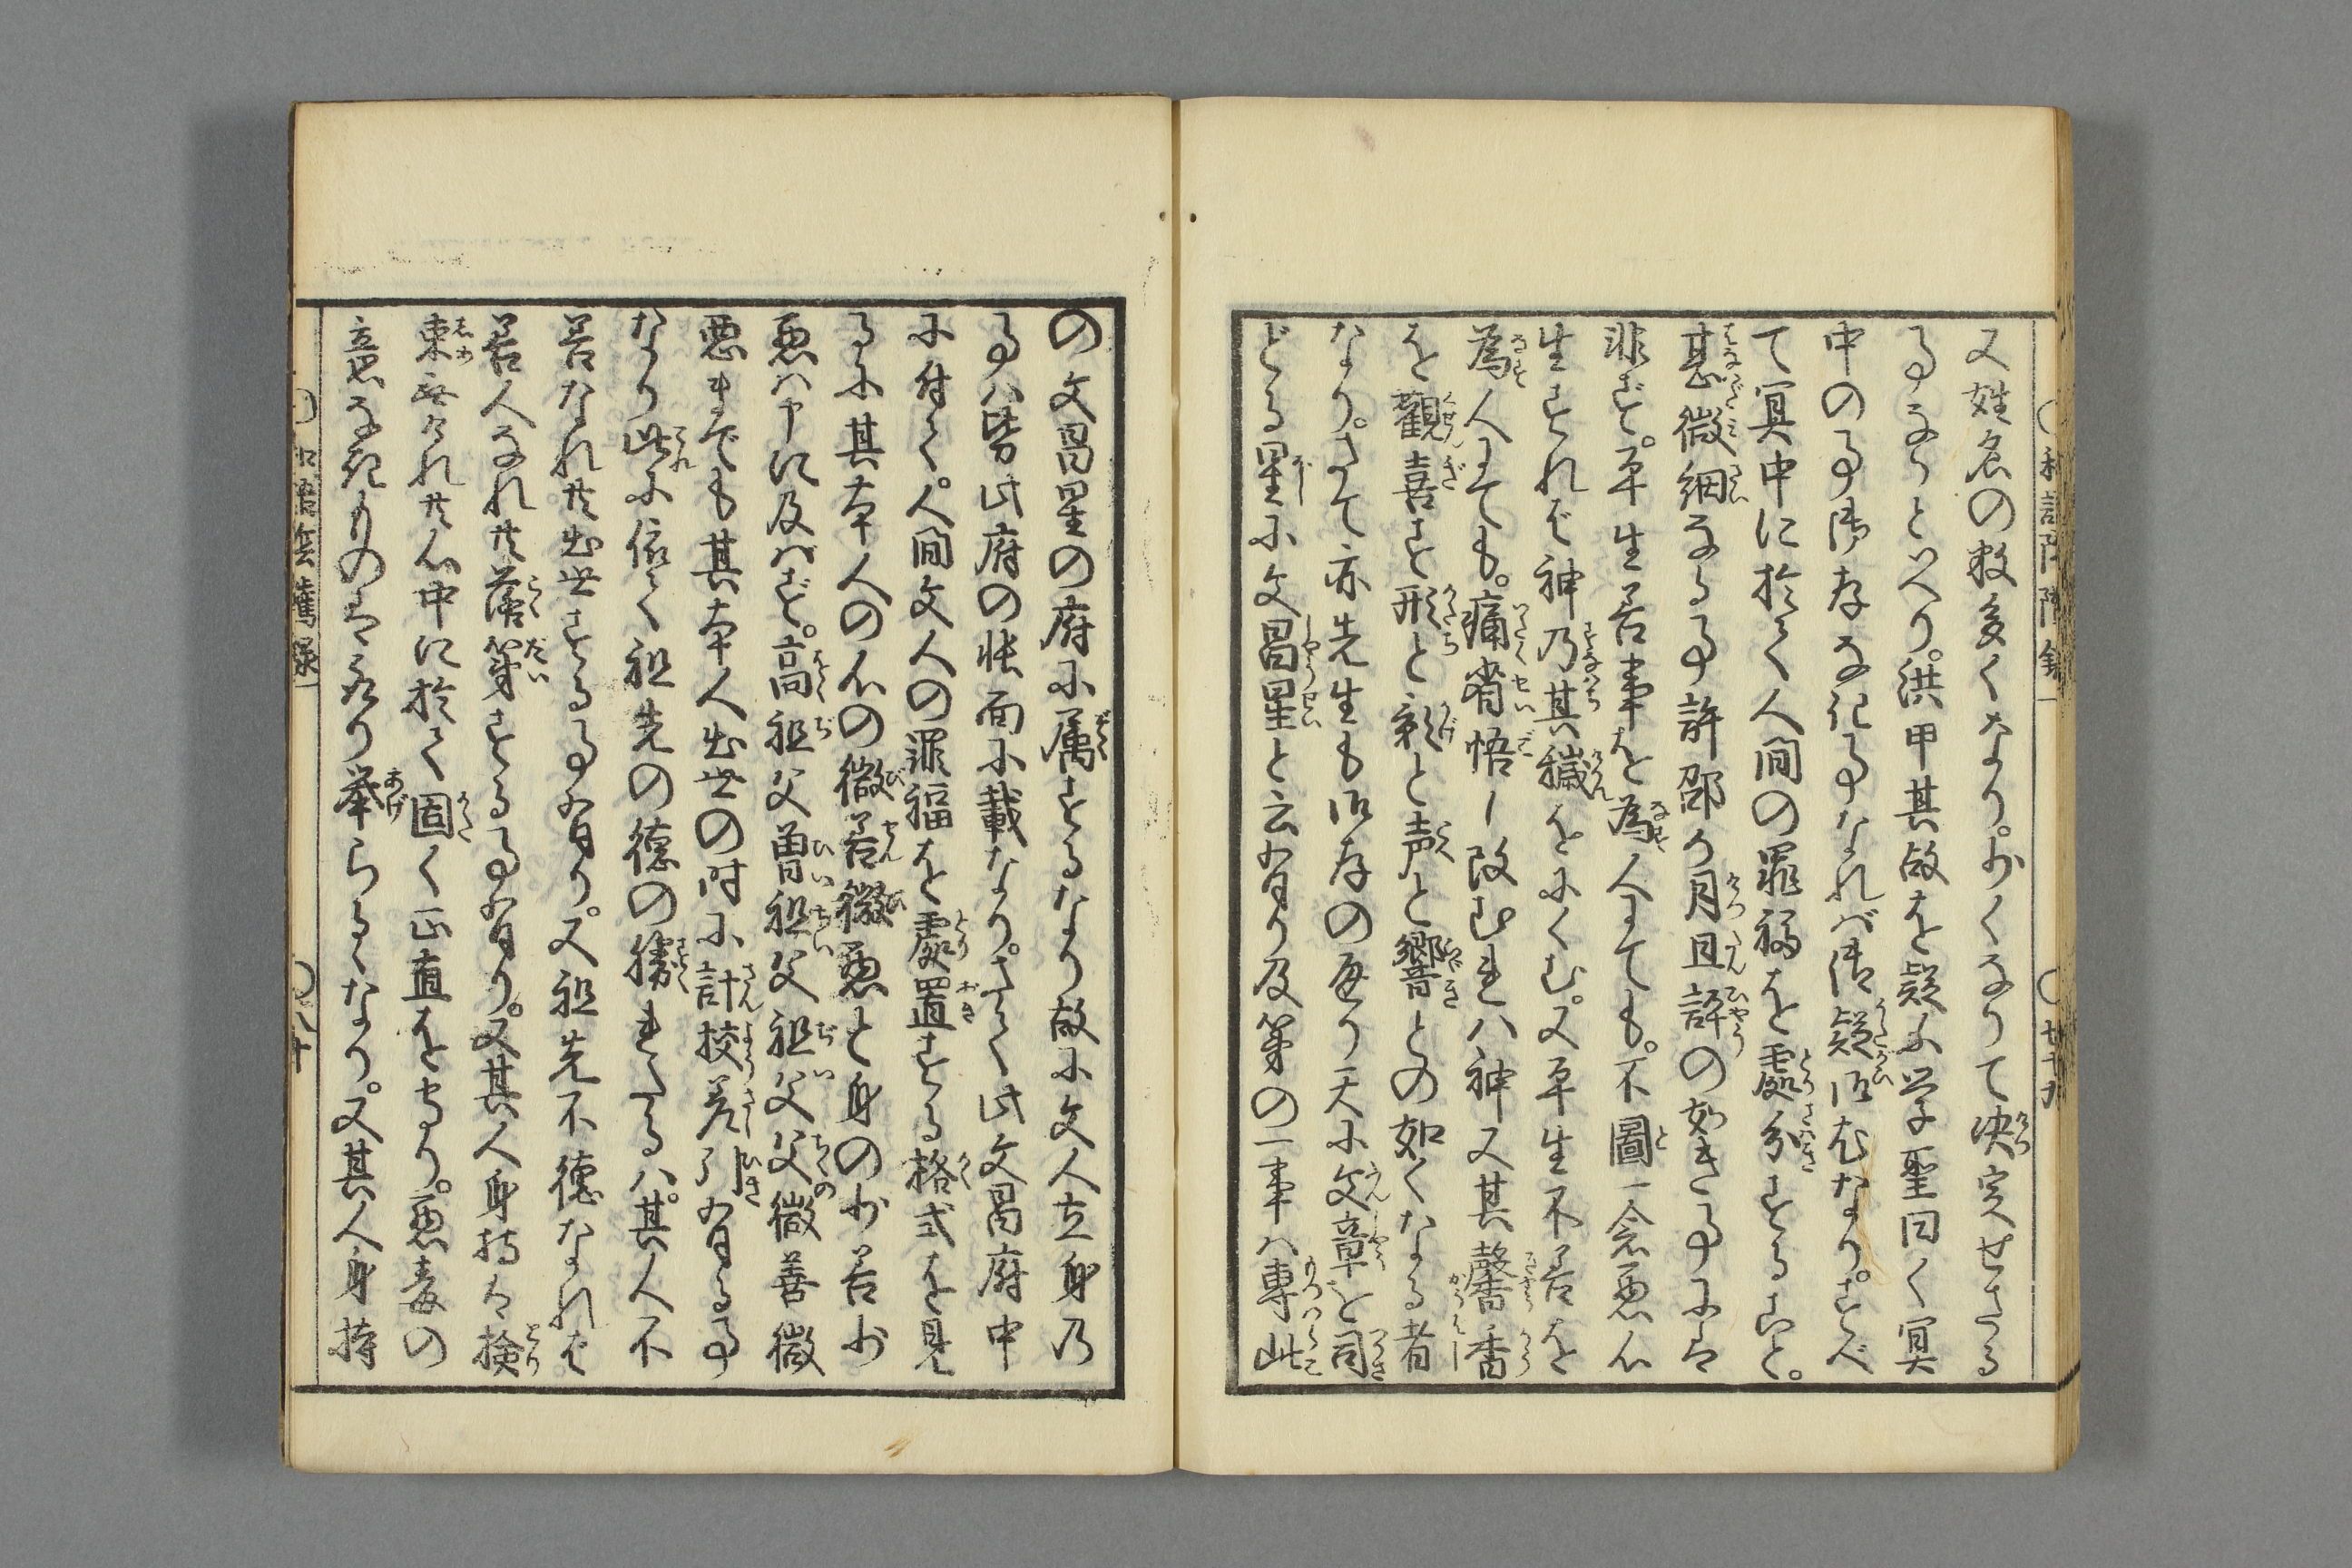 又姓名の数多くなり。少くなりて決定せざる
事ならといへり。洪甲其故を疑ふ学聖曰く冥
中の事御存なき事なれバ御疑御尤なり。すべ
て冥中に於て人間の罪福を處分すること。
甚微細なる事許邵が月旦評の如き事にハ
非ず。平生善事を為人にても。不圖一念悪心
生ずれば神乃其穢をにくむ。又平生不善を
為人にても。痛省悟し改むれハ神又其馨香
を觀喜す形と影と声と響との如くなる者
なり。さて亦先生も御存の通り天に文章を司
どる星に文昌星と云有り及第の一事ハ専此
の文昌星の府に属するなり故に文人立身乃
事ハ皆此府の帳面に載なり。さて此文昌府中
に付て。人間文人の罪福を處置する格式を見
るに其本人の心の微善微悪と身の少善少
悪ハ申に及バず。高祖父曽祖父祖父父微善微
悪までも其本人出世の时に計挍差引有る事
なり此に依て祖先の徳の勝れたるハ。其人不
善なれ共出世する事有り。又祖先不徳なれば
善人なれ共落第する事有り。又其人身持は検
束無けれ共心中に於て固く正直を守り。悪毒の
意なきものは参り举らるゝなり。又其人身持